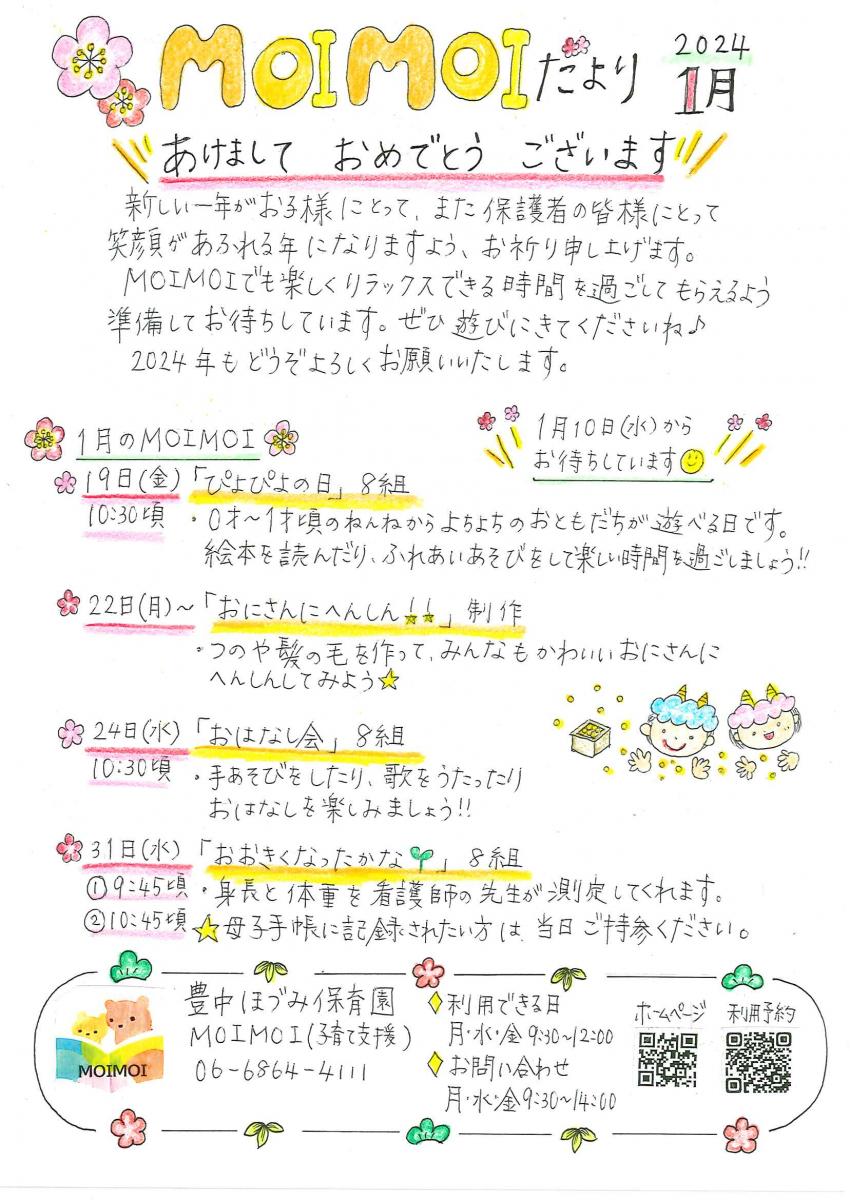 MOIMOIだより 2024 1月
あけまして おめでとう ございます
新しい一年がお子様にとって、また保護者の皆様にとって
笑顔があふれる年になりますよう、お祈り申し上げます。
MOIMOIでも楽しくリラックスできる時間を過ごしてもらえるよう
準備してお待ちしています。ぜひ遊びにきてくださいね♪
2024年もどうぞよろしくお願いいたします。
1月のMOIMOI
1月10日(水)から
お待ちしています
19日(金)「ぴよぴよの日」8組
10:30頃 ・0才~1才頃のねんねからよちよちのおともだちが遊べる日です。
絵本を読んだり、ふれあいあそびをして楽しい時間を過ごしましょう!!
22日(月)~「おにさんにへんしん!!」制作
・つのや髪の毛を作って、みんなもかわいいおにさんに
へんしんしてみよう☆
24日(水)「おはなし会」8組
10:30頃 ・手あそびをしたり、歌をうたったり
おはなしを楽しみましょう!!
31日(水)「おおきくなったかな」8組
①9:45頃 ・身長と体重を看護師の先生が測定してくれます。
②10:45頃 ☆母子手帳に記録されたい方は、当日ご持参ください。
MOIMOI
豊中ほづみ保育園
MOIMOI(子育て支援)
06-6864-4111
◆利用できる日
月・水・金 9:30~12:00
◆お問い合わせ
月・水・金 9:30~14:00
ホームページ
利用予約